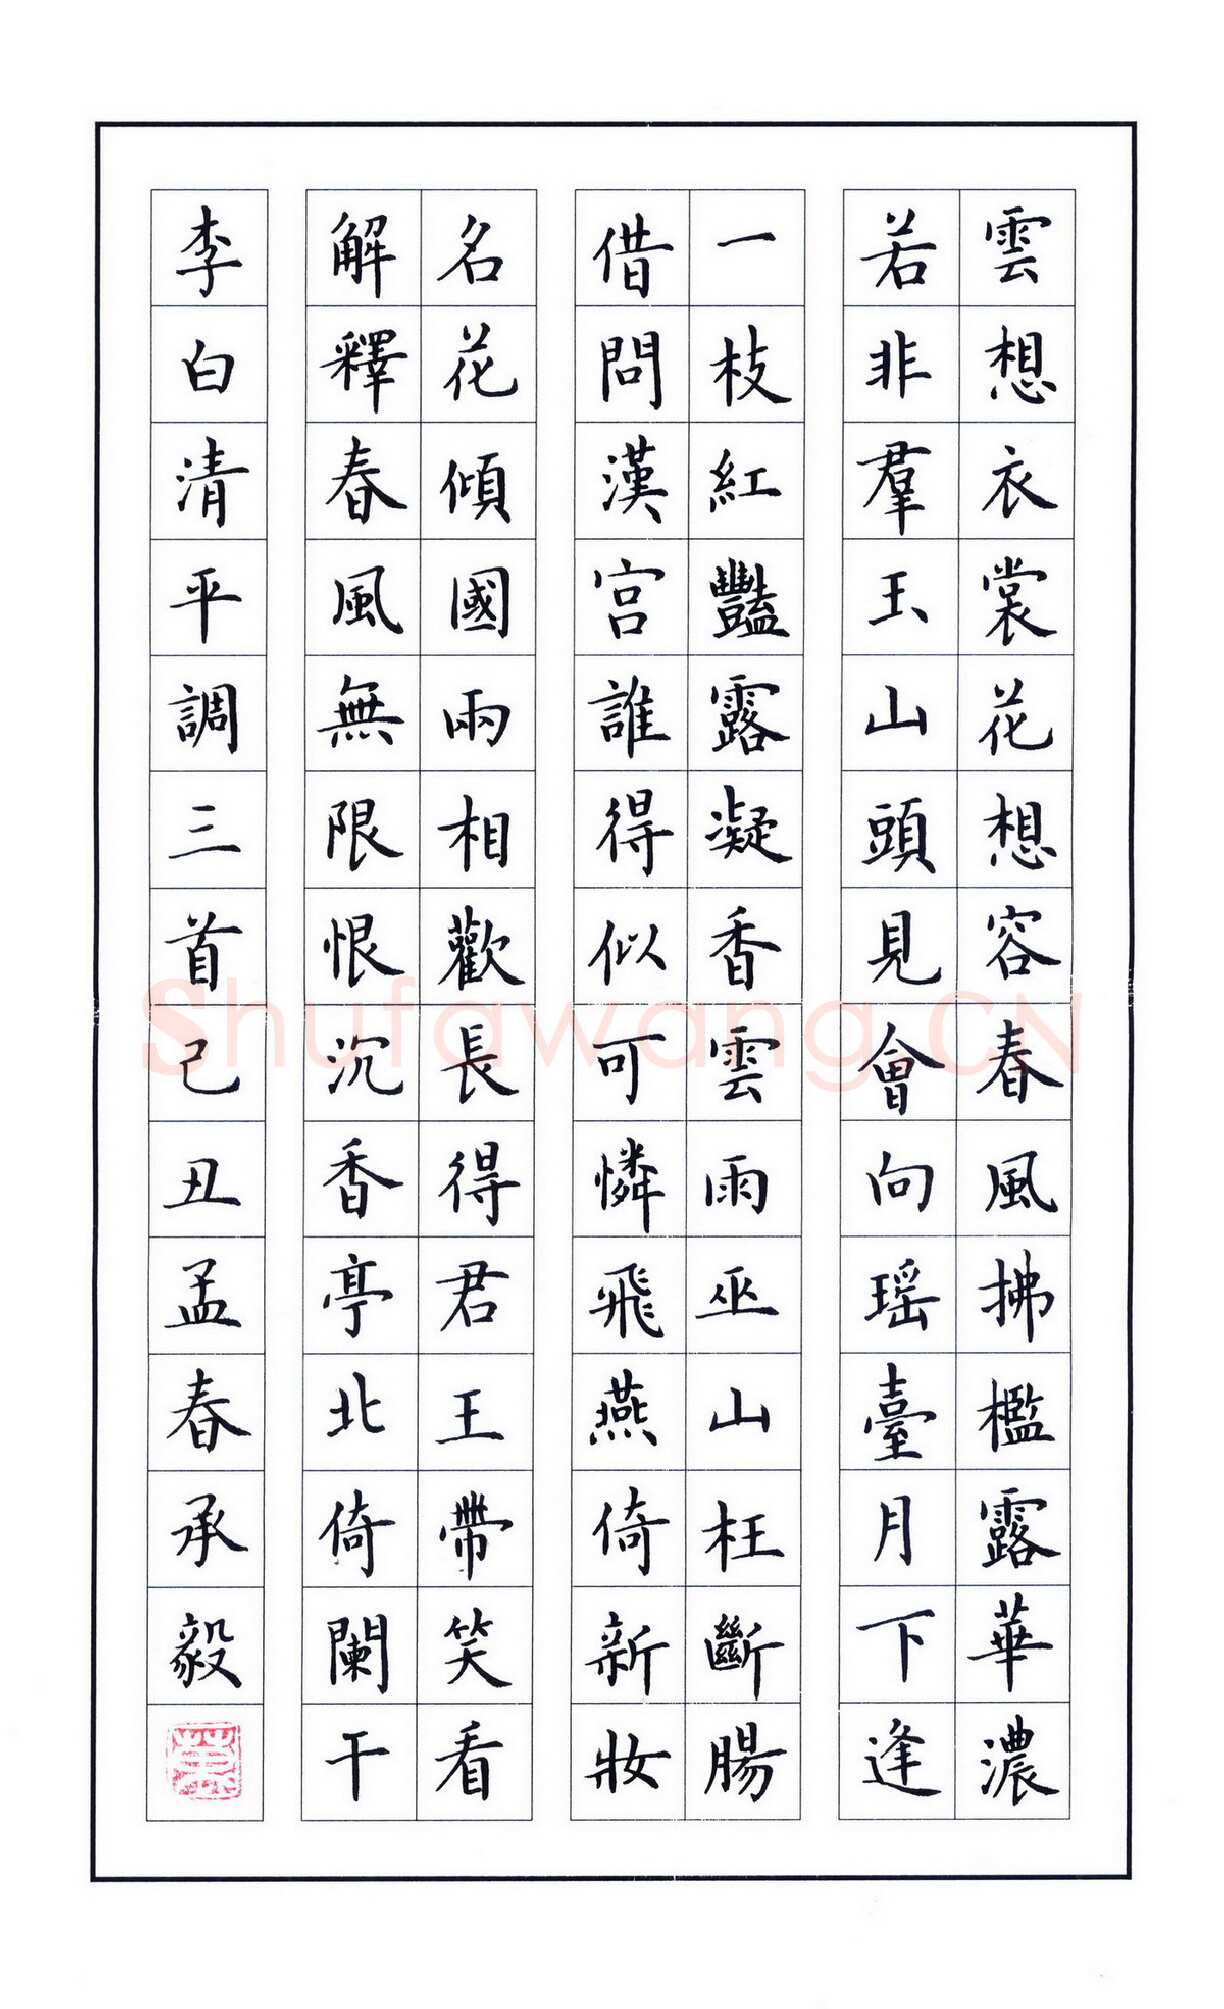 雲想衣裳花想容春風拂檻露華濃
若非羣玉山頭見會向瑶臺月下逢
一枝紅豔露凝香雲雨巫山枉斷腸
借問漢宫誰得似可憐飛燕倚新妝
名花傾國兩相歡長得君王帶笑看
解釋春風無限恨沉香亭北倚闌干
李白清平調三首己丑孟春承毅
Shufawang.CN